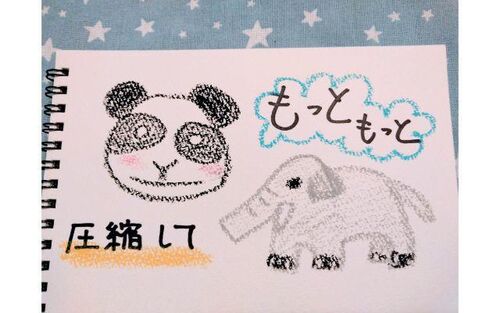 もっと
もっと
圧縮して